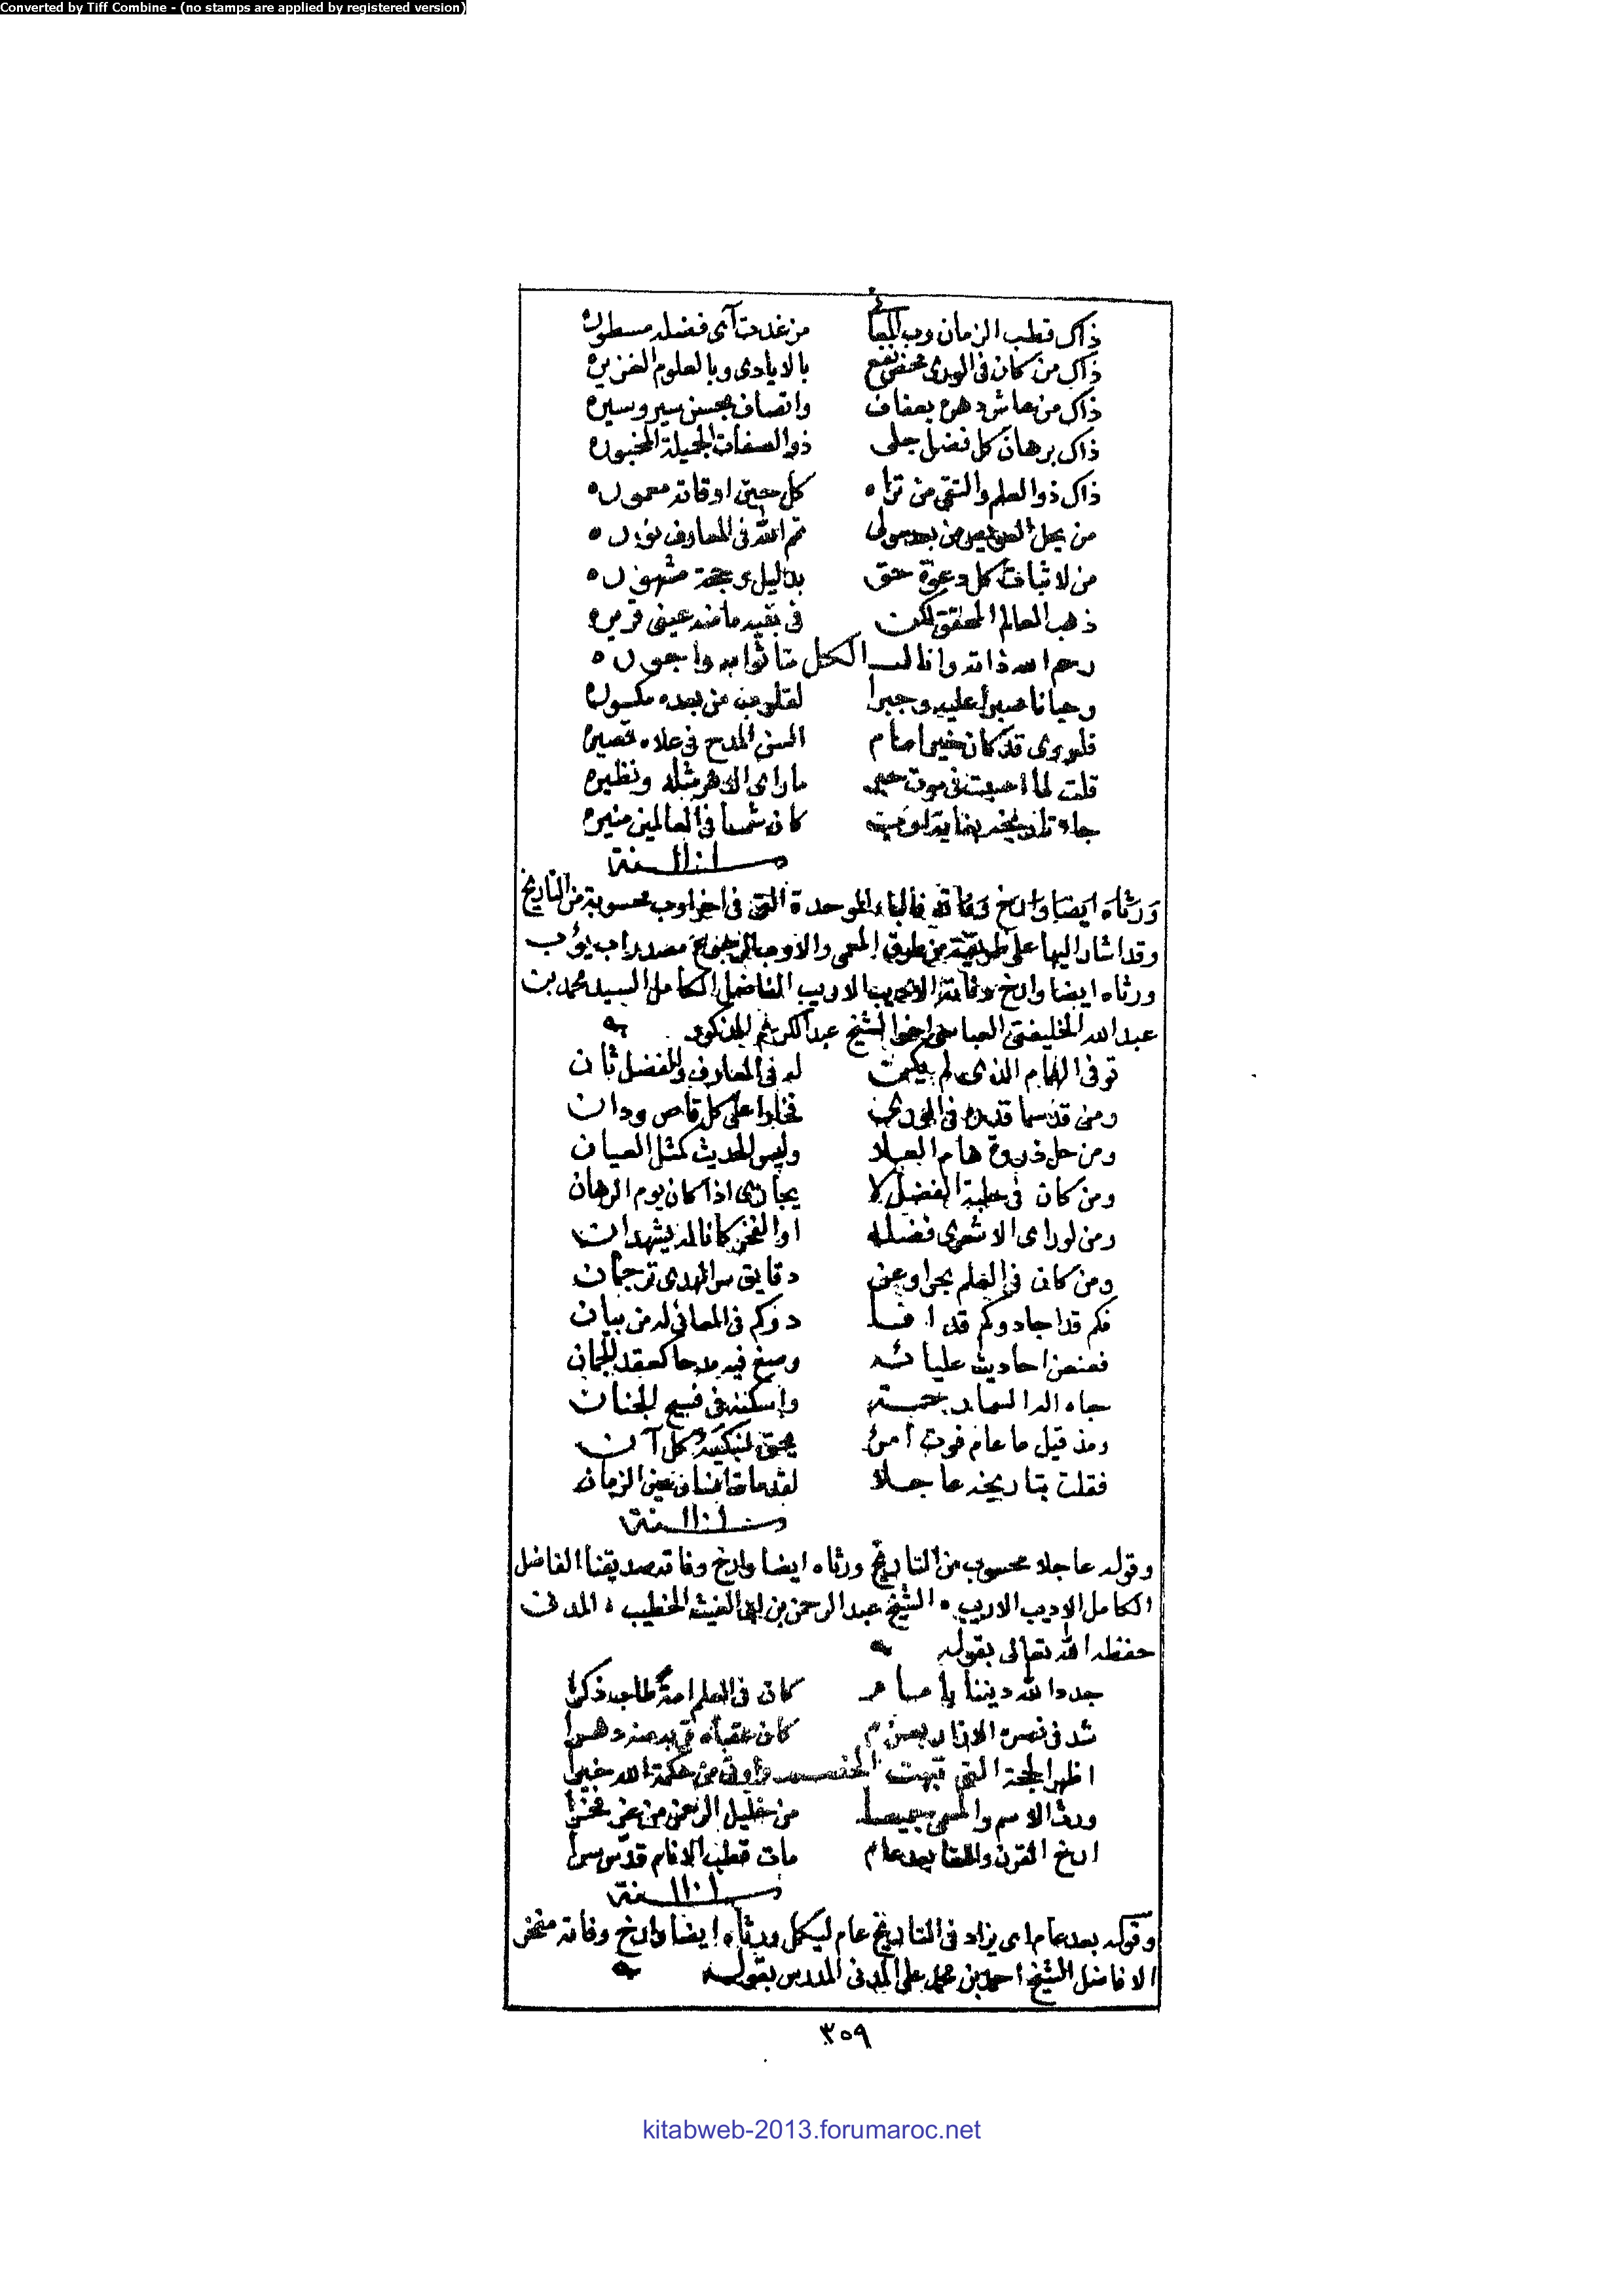 Converted by Tiff Combine - (no stamps are applied by registered version)
ذاك قطب الزمان ورب من غدت آى فضله مسطوره
ذاك من كان فى الورى محض نفع بالايادى وبالعلوم الغزيره
ذاك من عاش دهره بعفاف واتصاف بحسن سير وسيره
ذاك برهان كل فضل جلى ذو الصفات الجميلة المخبوره
ذاك ذو العلم والتقى من تراه كل حين اوقاته معموره
من يحل العويص من بعد مولى تمم الله فى المعارف نوره
من لاثبات كل دعوة حق بدليل وحجة مشهوره
ذهب العالم المحقق لكن فى بقيه ما منه عينى قريره
رحم الله ذاته وانا لـــ الكل منا ثوابه واجوره
وحبانا صبرا عليه وجبرا لقلوب من بعده مكسوره
فلعمرى قد كان خير امام السن المدح فى علاه قصيره
قلت لما اصبت فى موت حبر ما راى الدهر مثله ونظيره
جاء تاريخه كان شمسا فى العالمين منيره
سنة
ورثاه ايضا وارخ وفاته فالباء الموحدة التى فى اخر اوب محسوبة من التاريخ
وقد اشار اليها على طريقة من طرق المعمى والاوب الرجوع مصدر اب يؤب
ورثاه ايضا وارخ وفاته الاديب الاريب الفاضل الكامل السيد محمد بن
عبد الله الخليفتى العباسى اخو الشيخ عبد الكريم المذكور
توفى الهمام الذى لم يكن له فى المعارف والفضل ثان
ومن قد سما قدره فى الورى فخارا على كل قاص ودان
ومن حل ذروة هام العلا وليس الحديث كمثل العيان
ومن كان فى حلبة الفضل لا يجارى اذا كان يوم الرهان
ومن لو راى الاشعرى فضله او الفخر كانا له يشهدان
ومن كان فى العلم بحرا وعن دقايق سر الهدى ترجمان
فكم قد اجاد وكم قد افا د وكم فى المعانى له من بيان
فعنعن احاديث عليائه وصغ فيه مدحا كعقد الجمان
حباه اله السما رحمته واسكنه فى فسيح الجنان
ومذ قيل ما عام فوت امرئ يحق لنبكيه كل آن
فقلت بتاريخه عاجلا لقد مات انسان عين الزمان
سنة
وقوله عاجلا محسوب من التاريخ ورثاه ايضا وارخ وفاته صديقنا الفاضل
الكامل الاديب الاريب ٥ الشيخ عبد الرحمن بن ابى الغيث الخطيب ٥ المدنى
حفظه الله تعالى بقوله
جدد الله ديننا يا صاح كان فى العلم امة طاب ذكرا
شد فى نصرة بعزم كان دهرا
اظهر الحجة التى تبهت الخصــــم واوتى من حكمة الله خبرا
ورث الاسم والمسمى جميعا من خليل الرحمن من عز فخرا
ارخ القرن بعد عام مات قطب الانام قدس سرا
سنة
وقوله بعد عام اى يزاد فى التاريخ عام ليكمل ورثاه ايضا وارخ وفاته مفخر
الافاضل الشيخ احمد بن محمد على المدنى المدرس بقوله
٣٥٩
kitabweb-2013.forumaroc.net